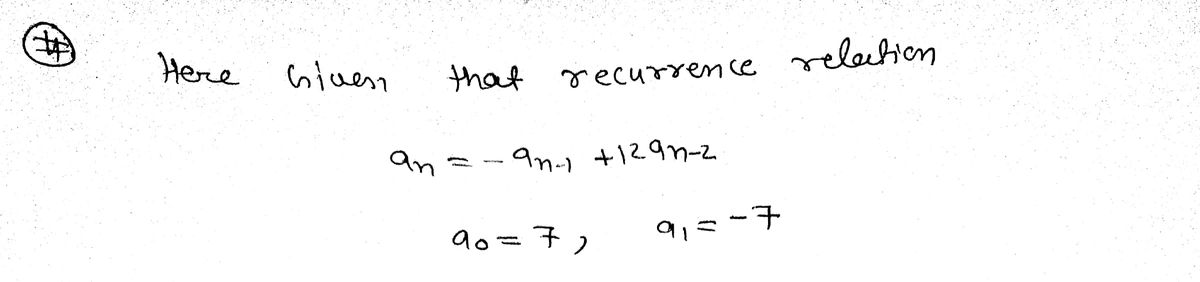 # Here Given that recurrence relation
an = - an-1 + 12an-2
a0 = 7, a1 = -7